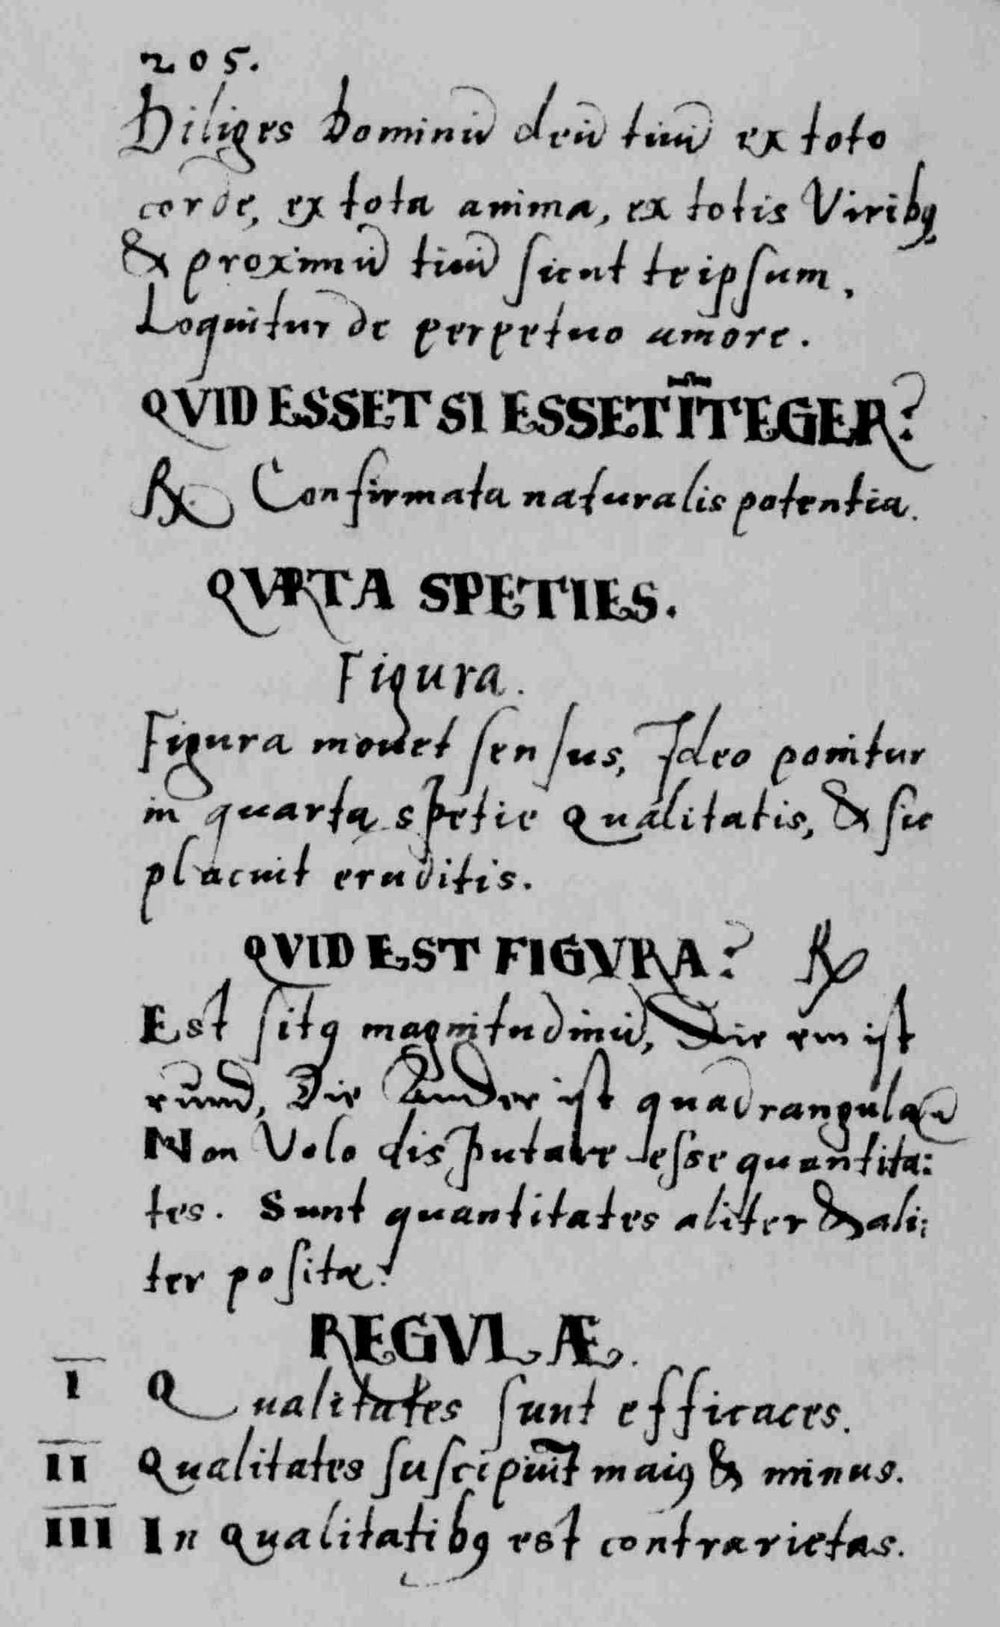 205.
Diliges Dominū deū tuū ex toto
corde, ex tota anima, ex totis Viribꝰ
& proximū tuū ſicut teipſum.
Loquitur de perpetuo amore.
QVID ESSET SI ESSET ĪTEGER?
℞ Confirmata naturalis potentia.
QVARTA SPETIES.
Figura.
Figura mouet ſenſus, Ideo ponitur
in quarta spetie Qualitatis, & ſic
placuit eruditis.
QVID EST FIGVRA? ℞
Est ſitꝰ magnitudinū, Die ein iſt
rund, Die Ander iſt quadrangula
Non Volo disputare esſe quantita:
tes. Sunt quantitates aliter & ali:
ter poſitæ.
REGVLÆ.
I Qualitates ſunt efficaces.
II Qualitates ſuſcipiūt maiꝰ & minus.
III In Qualitatibꝰ est contrarietas.